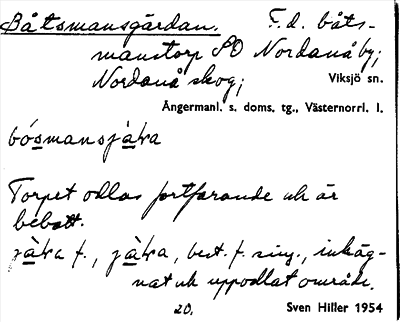 Båtsmansgärdan. F.d. båts-
manstorp SO Nordanå by;
Nordanå skog; Viksjö sn.
Ångermanl. s. doms. tg., Västernorrl. l.
bósmansjàka
Torpet odlas fortfarande och är
bebott.
jàka f., jàka, best. f. sing., inhäg-
nat och uppodlat område.
20. Sven Hiller 1954